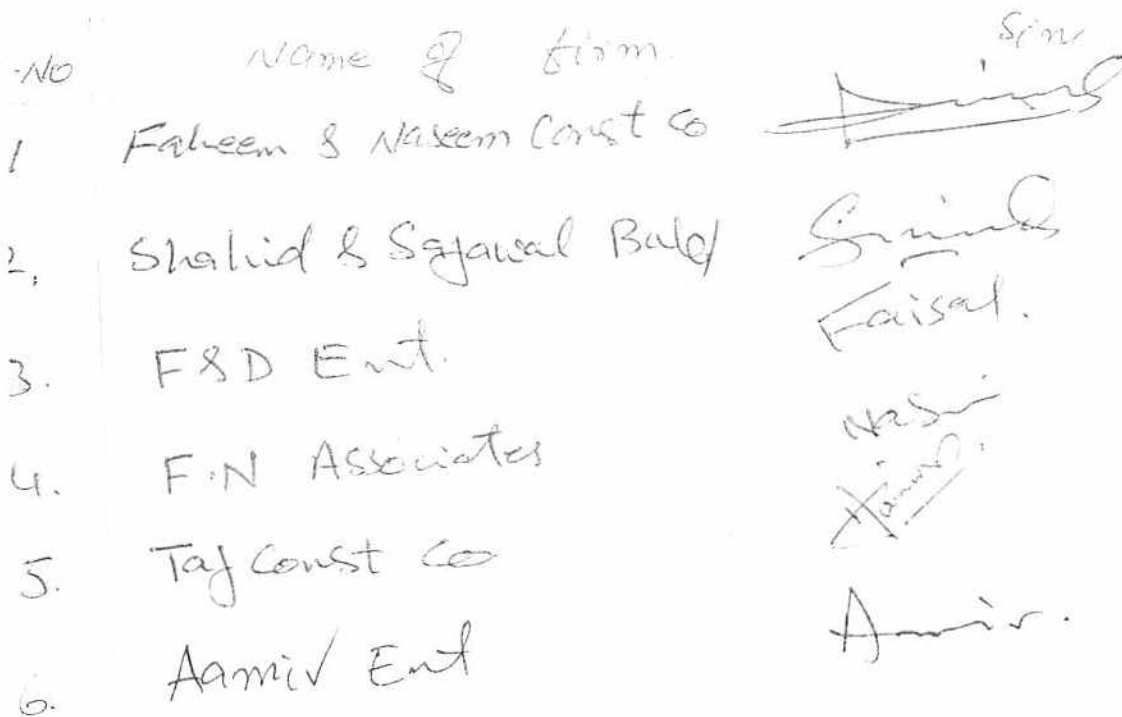 No Name of firm Sin
1 Faheem & Naseem Const Co
2. Shahid & Sajawal Bald
3. F&D Ent. Faisal.
4. F.N Associates Nasir
5. Taj Const Co
6. Aamir Ent Amir.